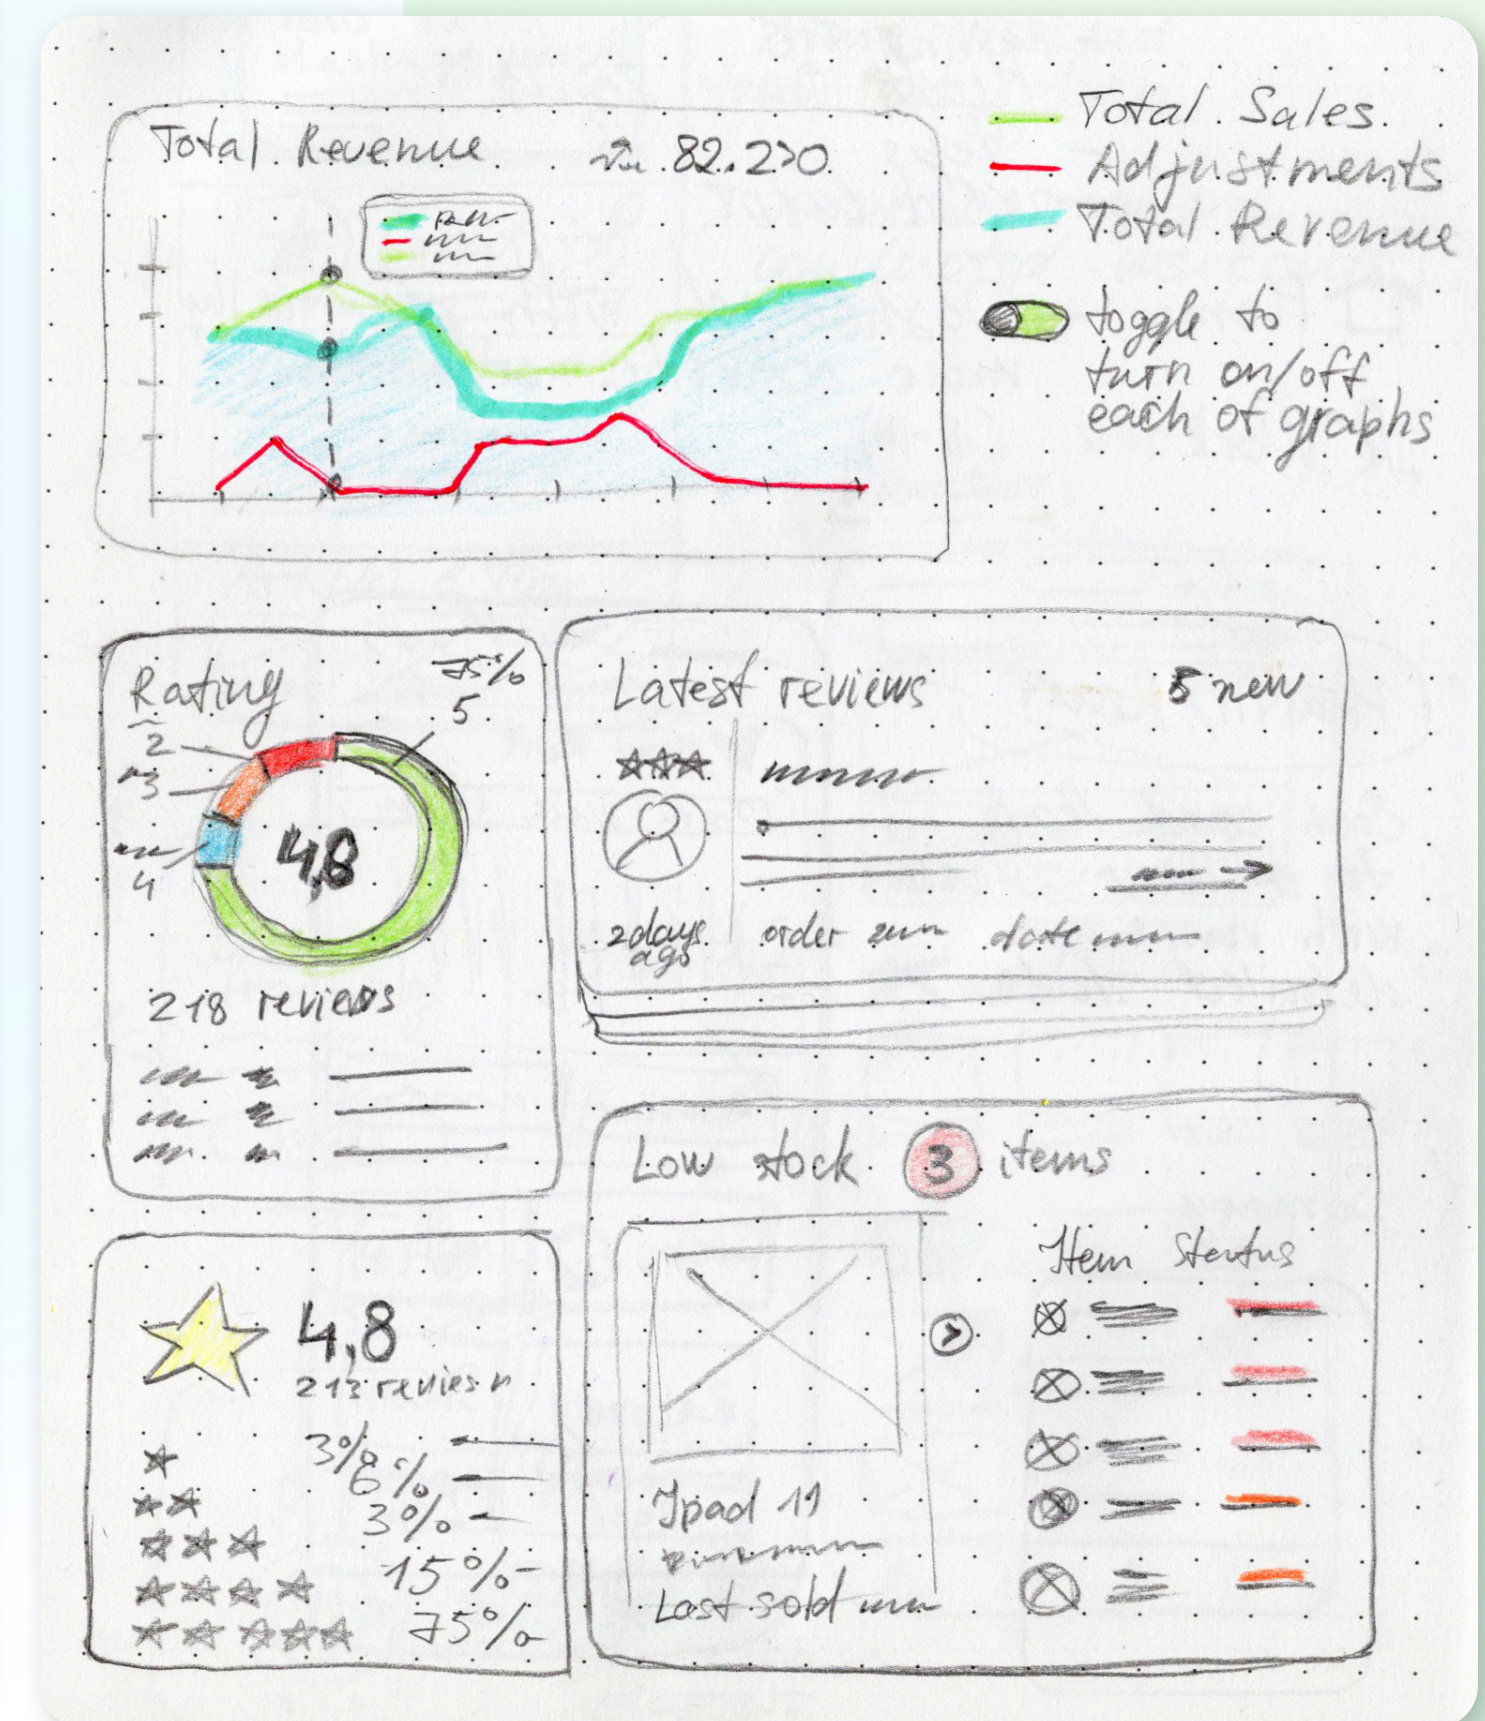 Total Revenue 82.230
Total Sales
Adjustments
Total Revenue
toggle to
turn on/off
each of graphs
Rating
75%
5
2
3
4
4,8
218 reviews
Latest reviews 5 new
2 days
ago
order date
Low stock 3 items
Item Status
Ipad 11
Last sold
4,8
213 reviews
3%
6%
3%
15%
75%